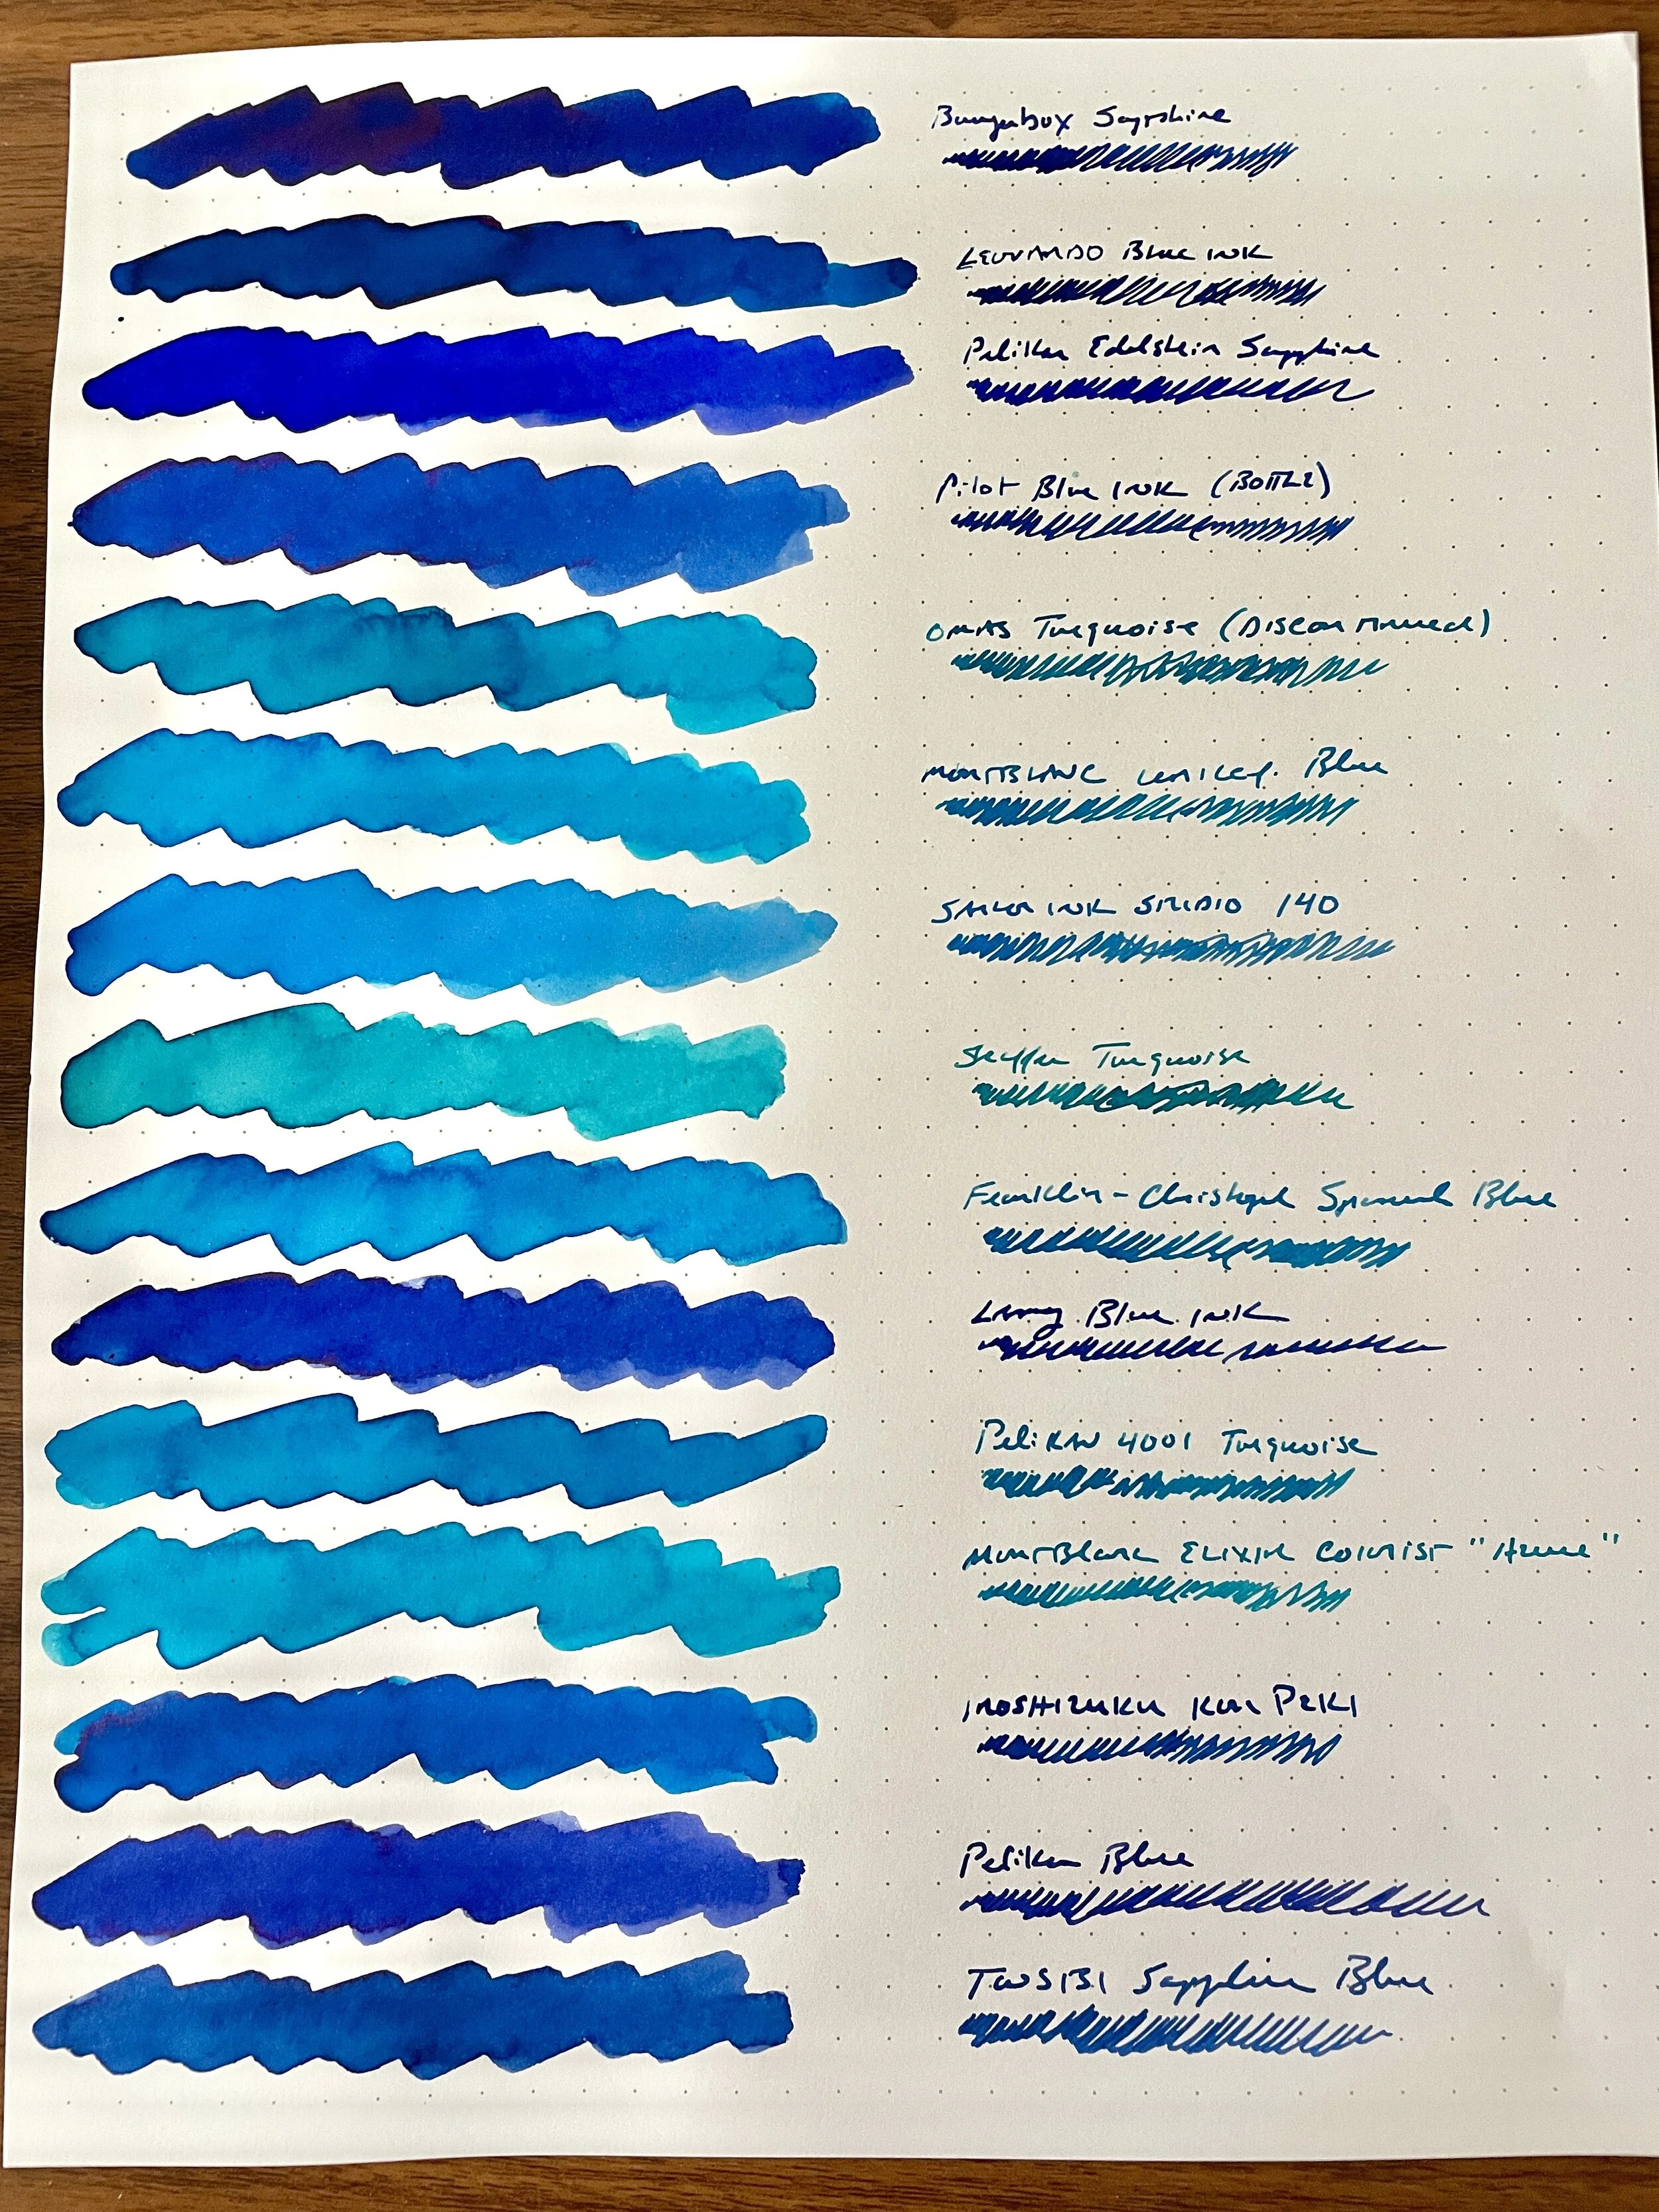 Bungubox Sapphire
LEONARDO Blue INK
Pelikan Edelstein Sapphire
Pilot Blue INK (BOTTLE)
OMAS Turquoise (DISCONTINUED)
MONTBLANC UNICEF Blue
SAILOR INK STUDIO 140
Sheaffer Turquoise
Franklin-Christoph Spanish Blue
Lamy Blue INK
PeliKAN 4001 Turquoise
MONTBlanc ELIXIR COLORIST "Azure"
IROSHIZUKU KON PEKI
Pelikan Blue
TWSBI Sapphire Blue